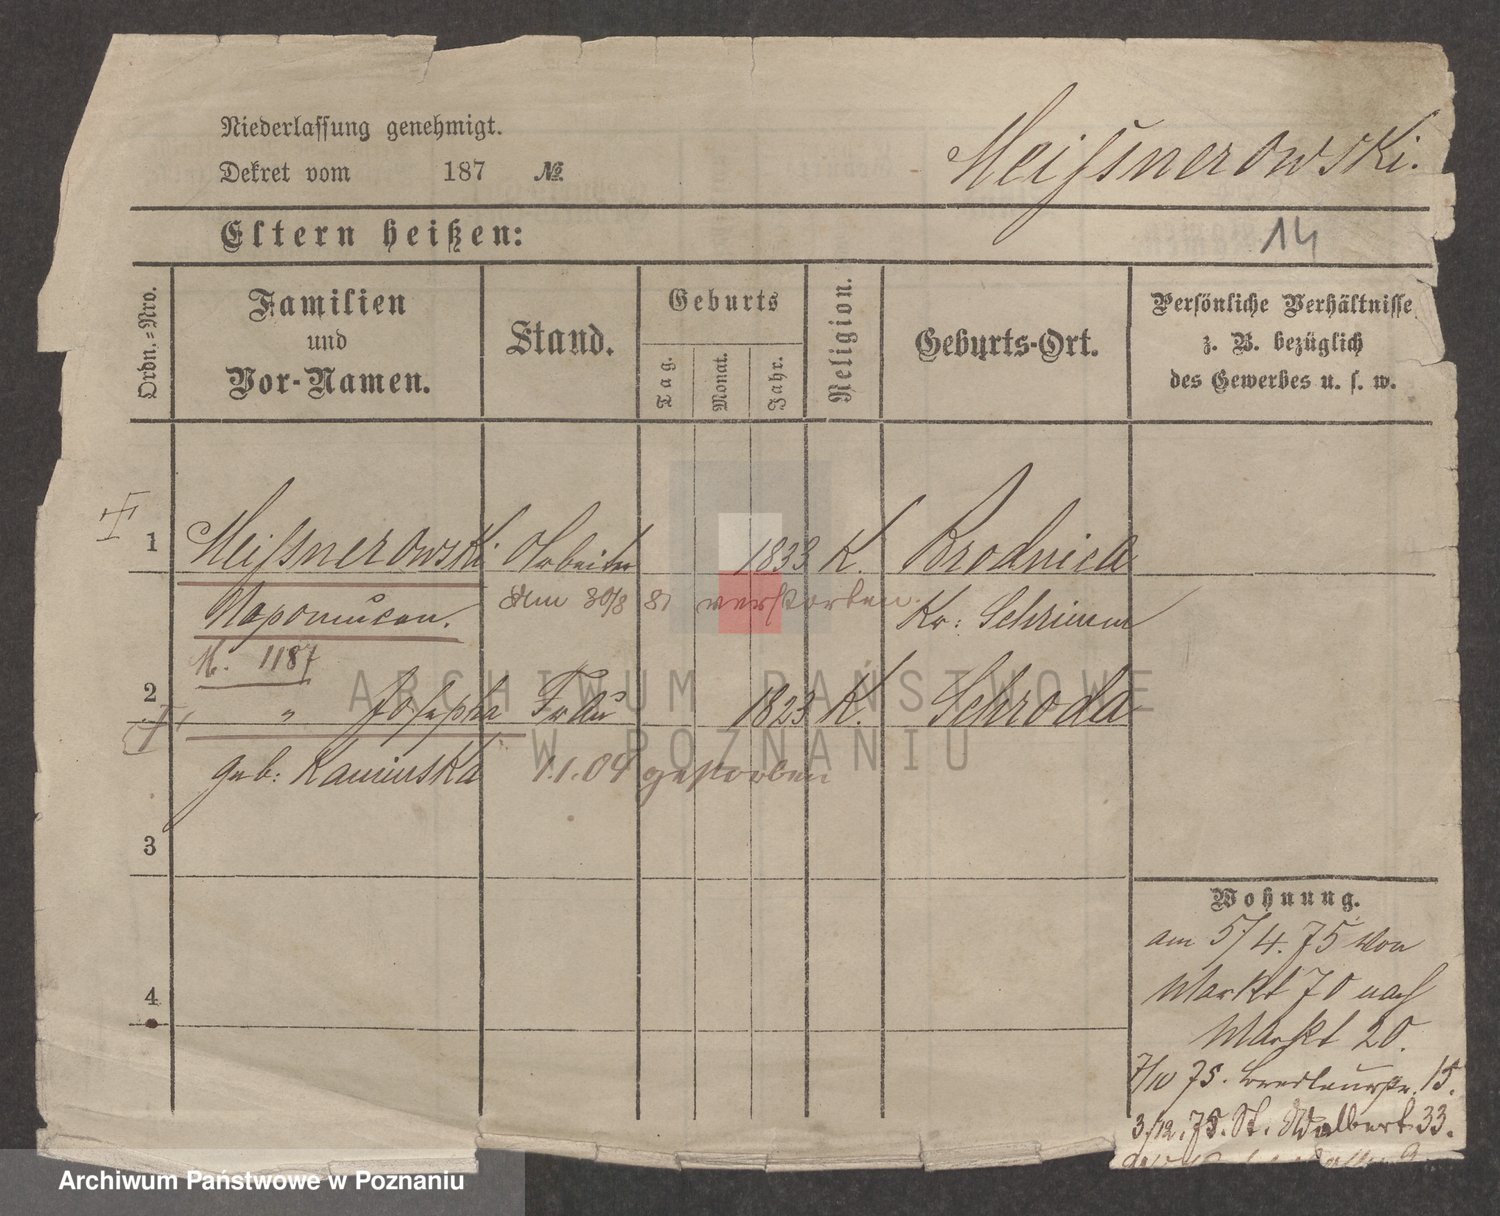 Niederlassung genehmigt.
Dekret vom 187 №
Meißnerowski.
Eltern heißen:
14
Ordn.-Nro.
Familien
und
Vor-Namen.
Stand.
Geburts
Tag.
Monat.
Jahr.
Religion.
Geburts-Ort.
Persönliche Verhältnisse
z. B. bezüglich
des Gewerbes u. s. w.
1 Meißnerowski Arbeiter 1833 K. Brodnica
Napomucen. Am 30/8 81 verstorben. Kr: Schrimm
M. 1187
2 " Josepha Frau 1823 K. Schroda
geb: Kaminska 1.1.04 gestorben
3
4
Wohnung.
am 5/4. 75 von
Markt 70 nach
Markt 20.
7/10 75. Breslauerstr. 15.
3/12. 75. St. Adalbert 33.
ARCHIWUM PAŃSTWOWE
W POZNANIU
Archiwum Państwowe w Poznaniu